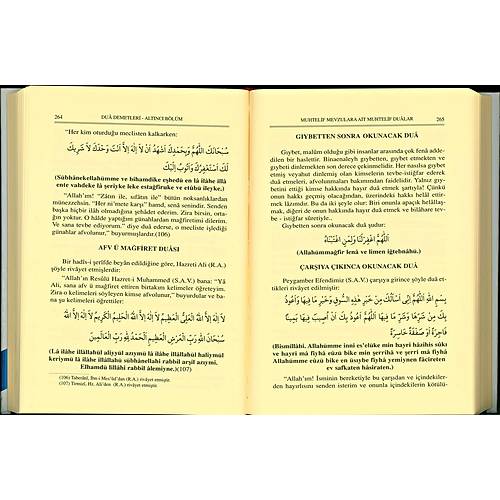 264 DUÂ DEMETLERİ - ALTINCI BÖLÜM
"Her kim oturduğu meclisten kalkarken:
سُبْحَانَكَ اللّٰهُمَّ وَبِحَمْدِكَ اَشْهَدُ اَنْ لَا اِلٰهَ اِلَّا اَنْتَ وَحْدَكَ لَا شَرِيكَ
لَكَ اَسْتَغْفِرُكَ وَاَتُوبُ اِلَيْكَ
(Sübhânekellahümme ve bihamdike eşhedü en lâ ilâhe illâ
ente vahdeke lâ şeriyke leke estağfiruke ve etûbü ileyke.)
"Allah'ım! "Zâtın ile, sıfâtın ile" bütün noksanlıklardan
münezzehsin. "Her an" hamd, banâ, senâ senindir. Senden
başka hiçbir ilâh olmadığına şehâdet ederim. Zira birsin, orta-
ğın yoktur. O hâlde yaptığım günahlardan mağfiretini dilerim.
Ve sana tevbe ediyorum." diye duâ ederse, o mecliste işlediği
günahlar afvolunur," buyurmuşlardır.(106)
AFV Ü MAĞFİRET DUÂSI
Bir hadîs-i şerîfde beyân edildiğine göre, Hazreti Ali (R.A.)
şöyle rivâyet etmişlerdir:
"Allah'ın Resûlü Hazret-i Muhammed (S.A.V.) bana: "Yâ
Ali, sana afv ü mağfiret ettiren birtakım kelimeler öğreteyim.
Zira o kelimeleri söyleyen kimse afvolunur," buyurdular ve ba-
na şu kelimeleri öğrettiler:
لَا اِلٰهَ اِلَّا اللّٰهُ الْعَلِىُّ الْعَظِيمُ لَا اِلٰهَ اِلَّا اللّٰهُ الْحَلِيمُ الْكَرِيمُ لَا اِلٰهَ اِلَّا
اللّٰهُ سُبْحَانَ اللّٰهِ رَبِّ الْعَرْشِ الْعَظِيمِ اَلْحَمْدُ لِلّٰهِ رَبِّ الْعَالَمِينَ
(Lâ ilâhe illâllahül aliyyül azıymü lâ ilâhe illâllahül haliymül
keriymü lâ ilâhe illâllahü sübhânellahi rabbil arşil azıymi.
Elhamdü lillâhi rabbil âlemiyne.)(107)
(106) Taberânî, İbn-i Mes'ûd'dan (R.A.) rivâyet etmiştir.
(107) Tirmizî, Hz. Ali'den (R.A.) rivâyet etmiştir.
MUHTELİF MEVZULARA AİT MUHTELİF DUÂLAR 265
GIYBETTEN SONRA OKUNACAK DUÂ
Gıybet, malûm olduğu gibi insanlar arasında çok fenâ adde-
dilen bir haslettir. Binaenaleyh gıybetten, gıybet etmekten ve
gıybeti dinlemekten son derece çekinmelidir. Her nasılsa gıybet
etmiş veyahut dinlemiş olan kimselerin evvelâ tevbe ederek
duâ etmeleri, afvolunmaları bakımından faidelidir. Yalnız gıy-
betini ettiği kimse hakkında hayır duâ etmek şartıyla! Çünkü
onun hakkı geçmiş olacağından, hakkını kendisine helâl ettir-
mek lâzımdır. Bu da iki şeyle olur: Biri onunla apaçık helâllaş-
mak, diğeri de onun hakkında hayır duâ etmek ve bilâhare tev-
be - istiğfar- etmektir.
Gıybetten sonra okunacak duâ şudur:
اَللّٰهُمَّ اغْفِرْ لَنَا وَلِمَنِ اغْتَبْنَاهُ
(Allahümmağfir lenâ ve limen iğtebnâhü.)
ÇARŞIYA ÇIKINCA OKUNACAK DUÂ
Peygamber Efendimiz (S.A.V.) çarşıya girince şöyle duâ et-
tikleri rivâyet edilmiştir:
بِسْمِ اللّٰهِ اَللّٰهُمَّ اِنِّى اَسْأَلُكَ مِنْ خَيْرِ هٰذِهِ السُّوقِ وَخَيْرِ مَا فِيهَا وَاَعُوذُ
بِكَ مِنْ شَرِّهَا وَشَرِّ مَا فِيهَا اَللّٰهُمَّ اَعُوذُ بِكَ اَنْ اُصِيبَ فِيهَا يَمِينًا
فَاجِرَةً اَوْ صَفْقَةً خَاسِرَةً
(Bismillâhi. Allahümme innî es'elüke min hayri hâzihis sûki
ve hayri mâ fiyhâ eûzü bike min şerrihâ ve şerri mâ fiyhâ
Allahümme eûzü bike en üsıybe fiyhâ yemiynen fâcireten
ev safkaten hâsiraten.)
"Allah'ım! İsminin bereketiyle bu çarşıdan ve içindekiler-
den hayrını senden isterim ve onunla içindekilerin kötülü-